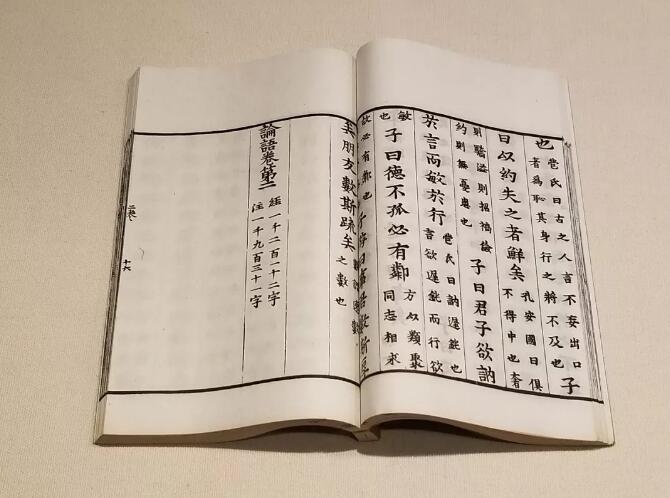 也 苞氏曰古之人言不妄出口
者為恥其身行之將不及也 子
曰以約失之者鮮矣 孔安國曰俱
不得中也奢
則驕溢則招禍儉
約則無憂患也 子曰君子欲訥
扵言而敏扵行 苞氏曰訥遲鈍也
言欲遲鈍而行欲
敏
也 子曰德不孤必有鄰 方以類聚
同志相求
故必有鄰也
矣朋友數斯疏矣 之數也
論語卷第二 經一千二百一十二字
注一千九百三十一字
十六